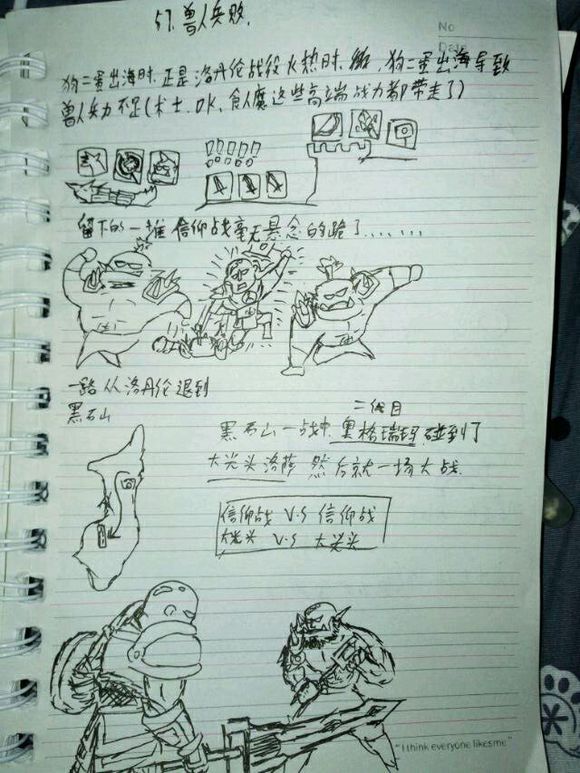 57.兽人兵败.
No
Date
狗二蛋出海时.正是洛丹伦战役火热时. 狗二蛋出海导致
兽人兵力不足(术士.DK.食人魔这些高端战力都带走了)
留下的一堆信仰战毫无悬念的跪了.......
一路从洛丹伦退到
黑石山
二代目
黑石山一战中.奥格瑞玛碰到了
大光头洛萨 然后就一场大战.
信仰战 V.S 信仰战
大光头 V.S 大光头
"I think everyone likes me"